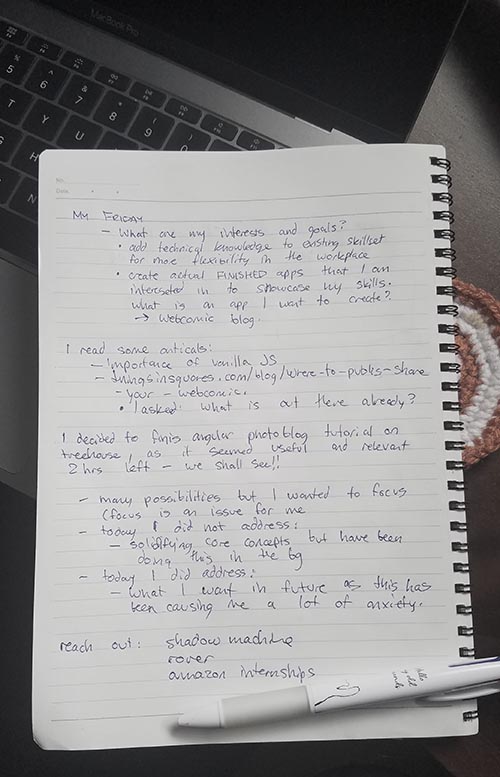 MacBook Pro
5
6
7
8
9
0
T
Y
U
G
H
N
No.
Date
My FRIDAY
- What are my interests and goals?
• add technical knowledge to existing skillset
for more flexibility in the workplace
• create actual FINISHED apps that I am
interested in to showcase my skills.
What is an app I want to create?
→ Webcomic blog.
I read some anticals:
- Importance of vanilla JS
- thingsinsquares.com/blog/where-to-publis-share
- your - webcomics.
• I asked what is out there already?
I decided to finis angular photoblog tutorial on
treehouse, as it seemed useful and relevant
2 hrs left - we shall see!!
- many possibilities but I wanted to focus
(focus is an issue for me
- today I did not address:
- solidifying core concepts but have been
doing this in the bg
- today I did address:
- what I want in future as this has
been causing me a lot of anxiety.
reach out: shadow machine
rover
amazon internships